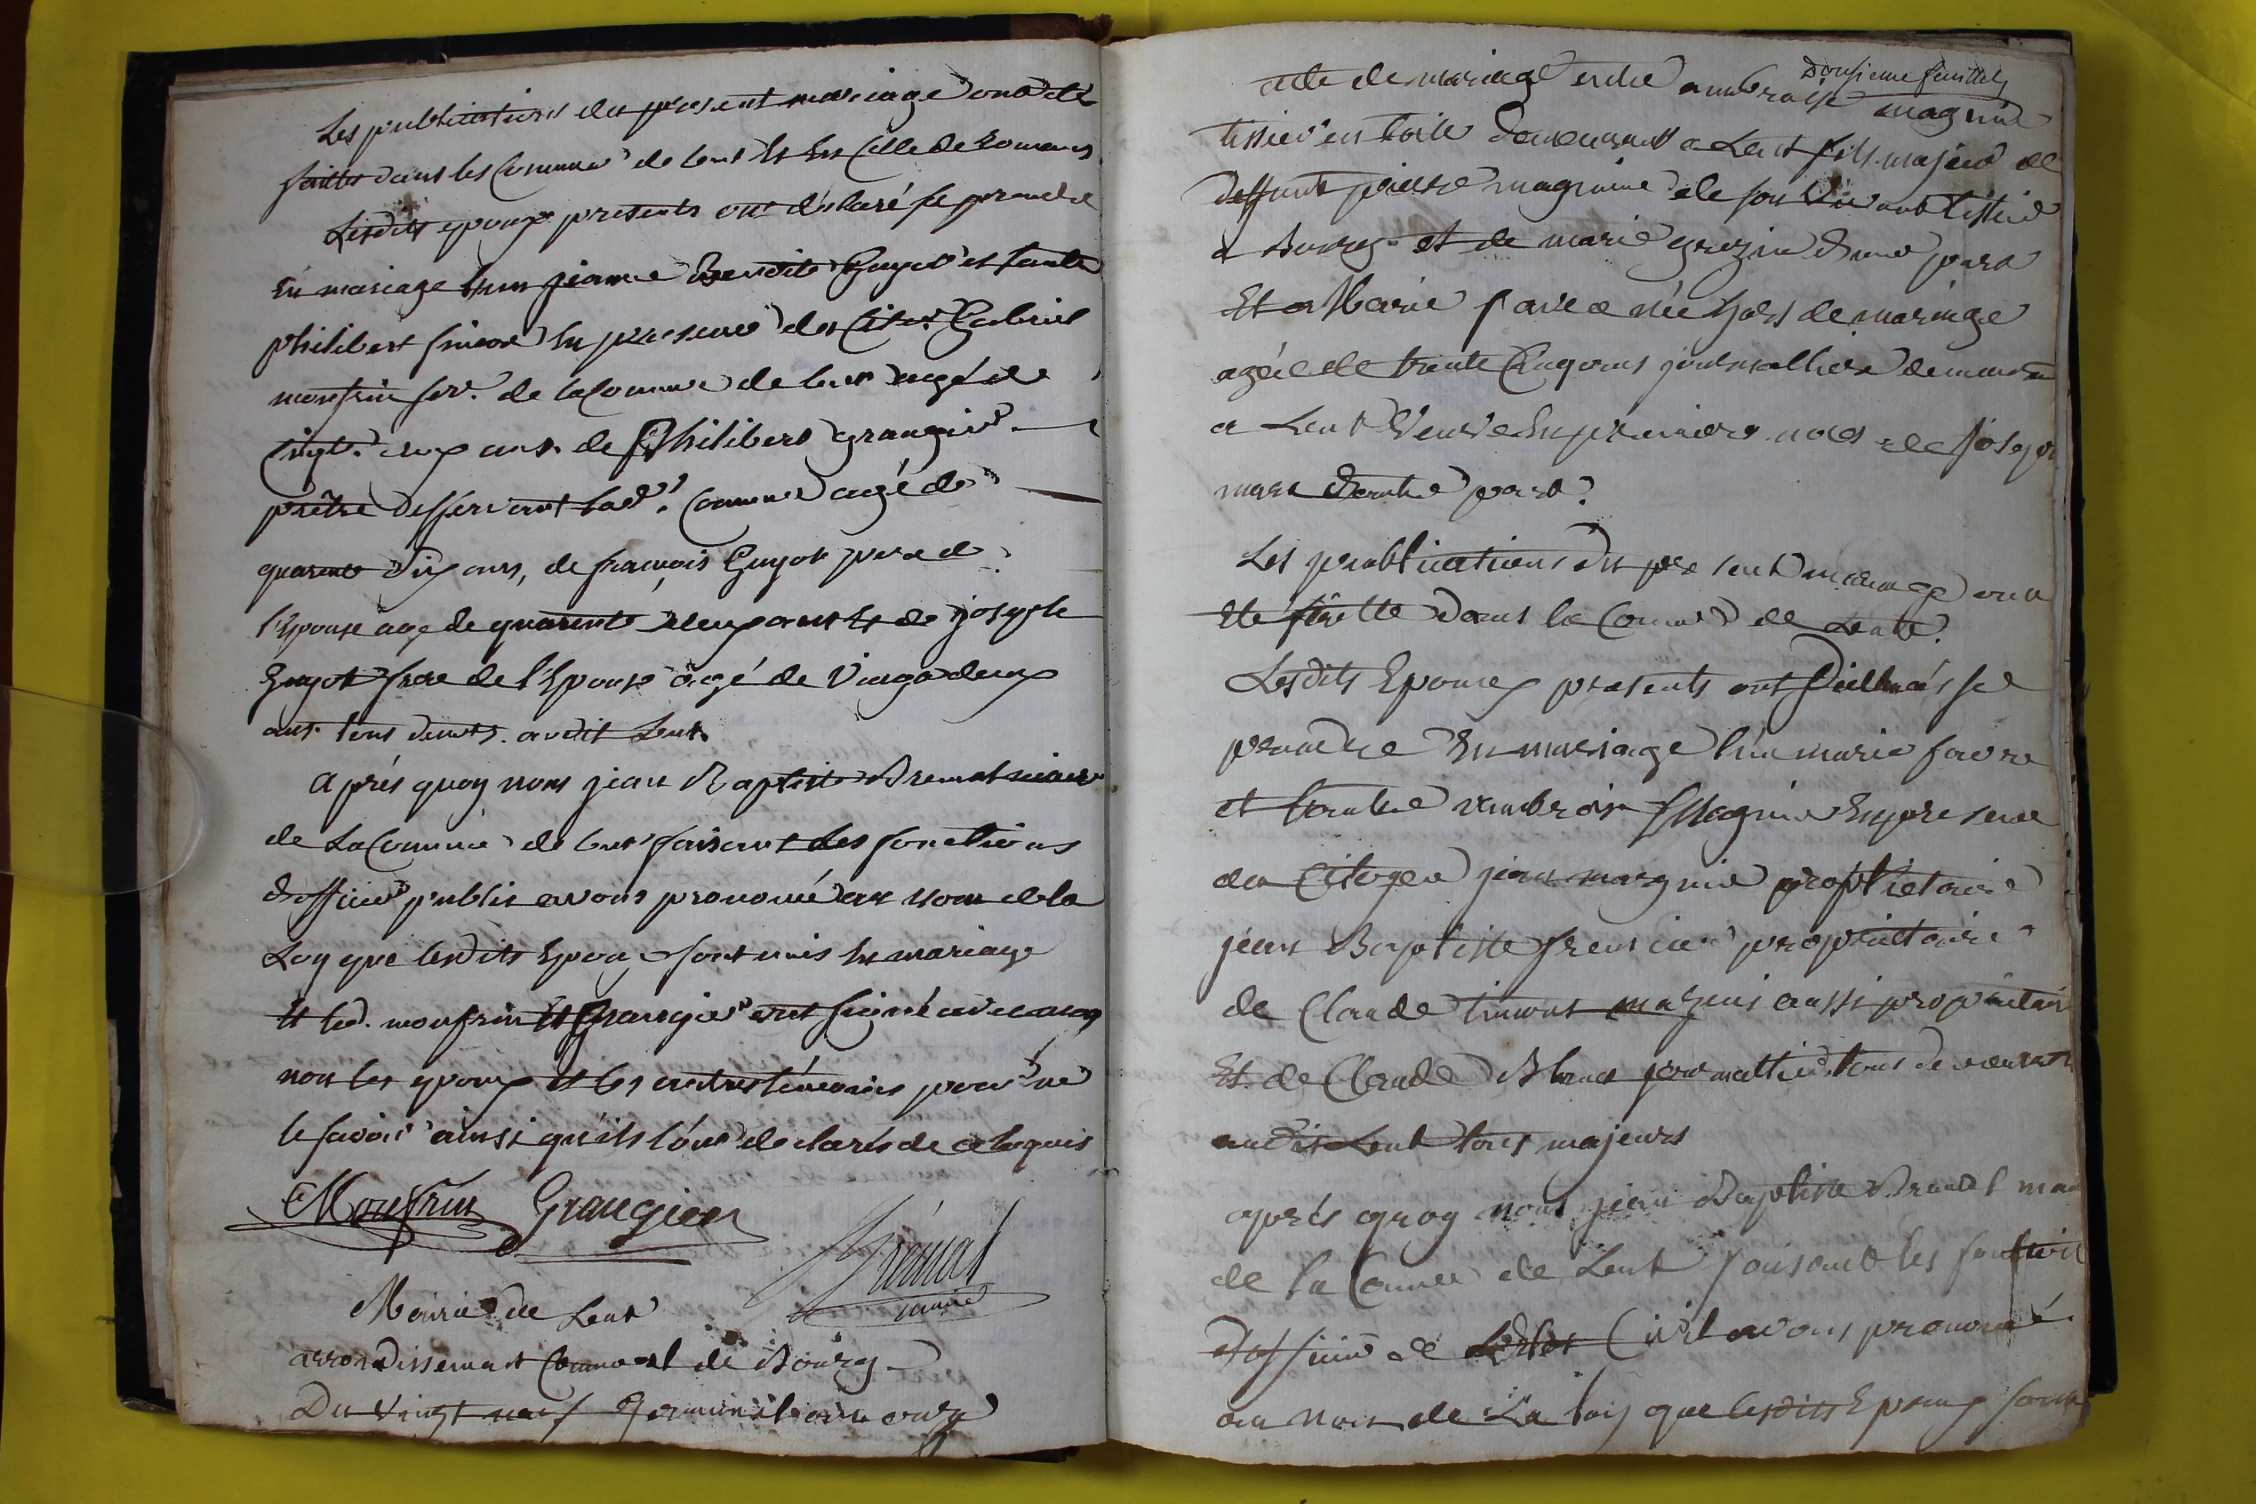 Les publications du present mariage ont été
faittes dans les Comune de Lent et en Celle de Romans
Lesdits epoux presents ont déclaré se prendre
En mariage l'un jeanne Benoite Guyot et l'autre
philibert en presence des Cito. Gabriel
monfrin de la Comune de Lent agé de
vingt ans de Philibert grangier
prêtre desservant lad. Comune agé de
quarente Dix ans, de françois Guyot pere de
l'Epouse age de quarente deux ans et de joseph
Guyot frere de l'Epouse agé de Vingt deux
ans tous demts. audit Lent.
Après quoy nous jean Baptiste Bremat maire
de La Comune de Lent faisant les fonctions
d'officier public avons prononcé au nom de la
Loy que lesdits Epoux sont unis en mariage
et led. monfrin et Grangier ont signé avec moy
non les epoux et les autres témoins pour ne
le savoir ainsi qu'ils l'ont declarés de ce requis
Monfrin Grangier
Brémat
maire
Mairie de Lent
arrondissement Communal de Bourg
Du Vingt neuf Germinal an onze
Douzieme feuillet
acte de mariage entre ambroise magnin
tissier en toile demeurant a Lent fils majeur de
deffunt pierre magnin de son vivant tissier
a Bourg et de marie grezin d'une part
Et Marie favre née hors de mariage
agée de trente Cinq ans journalliere demeurant
a Lent Veuve En premiere noces de Joseph
d'autre part.
Les publications du present mariage ont
Ete faitte dans la Comune de Lent.
Lesdits Epoux presents ont déclarés se
prendre En mariage l'un marie favre
et l'autre ambroise Magnin En presence
du Citoyen jean magnin propriétaire
jean Baptiste proprietaire
de Claude aussi proprietaire
Et de Claude Blanc tous demeurant
audit Lent tous majeurs
après quoy nous jean Baptiste Bremat mai
de la Comune de Lent faisant les fonctions
d'officier de L'etat Civil avons prononcé
au nom de La loy que lesdits Epoux sont